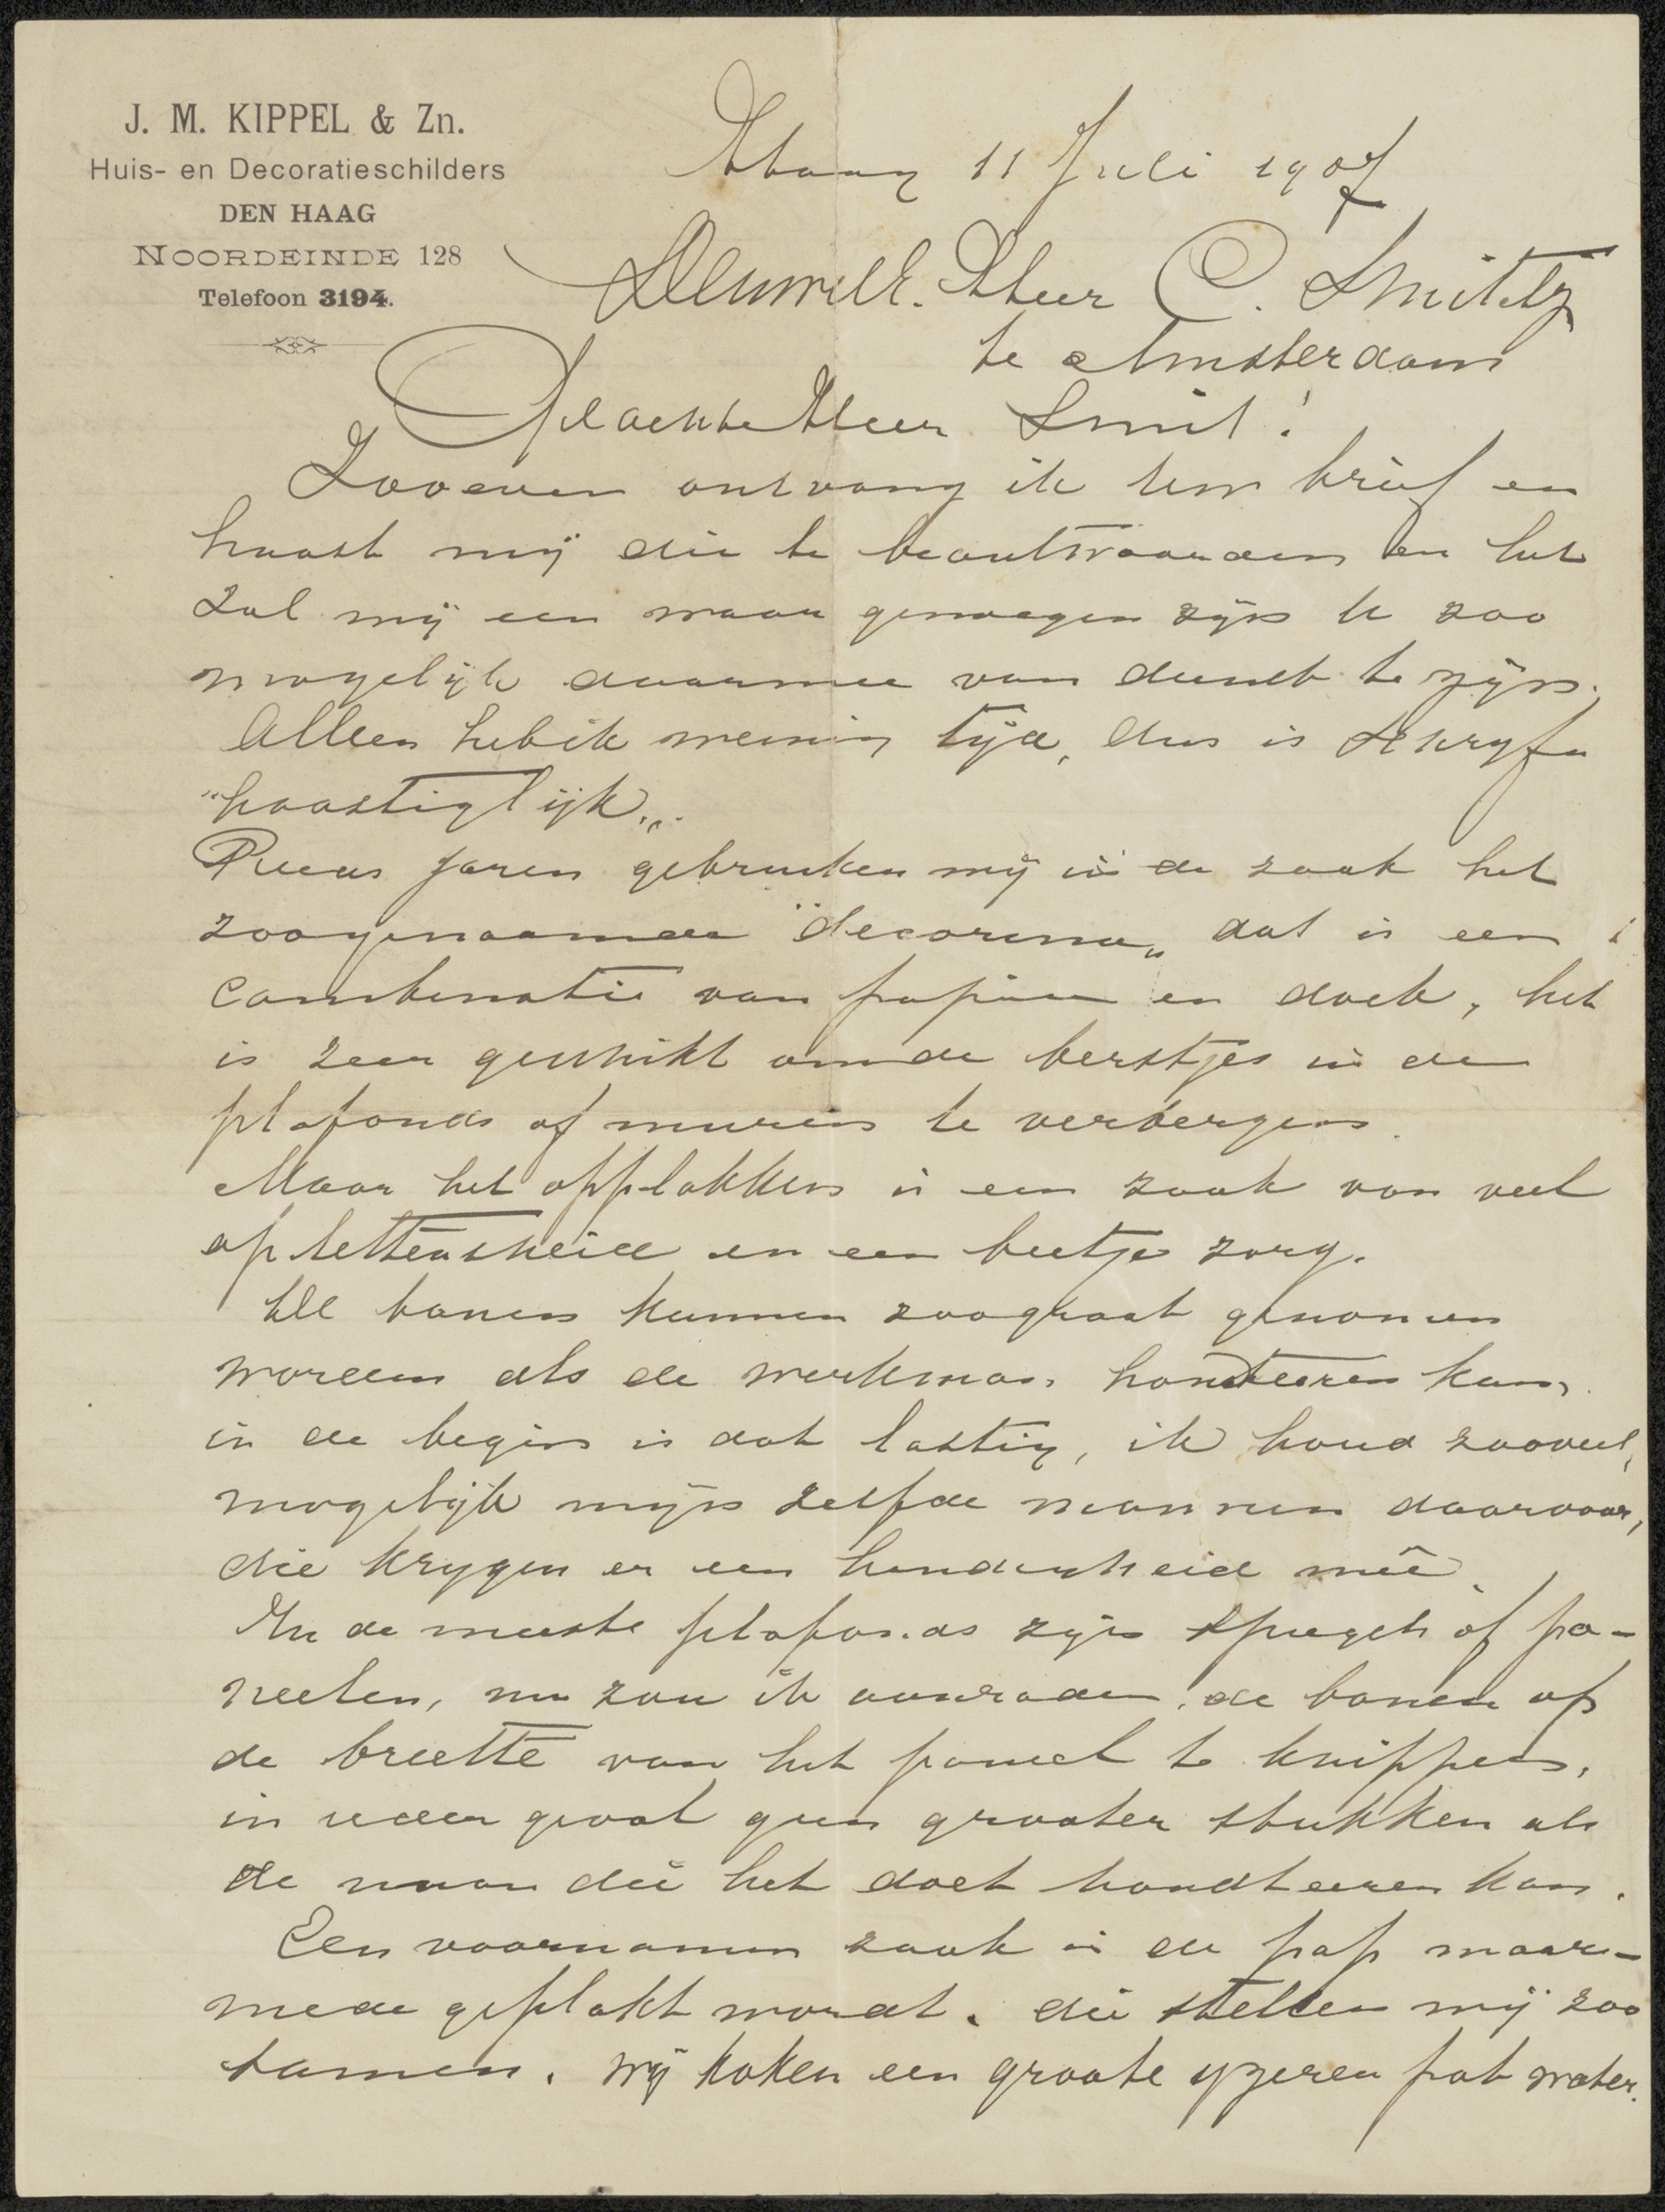 J. M. KIPPEL & Zn.
Huis- en Decoratieschilders
DEN HAAG
NOORDEINDE 128
Telefoon 3194.
Haag 11 Juli 1907
Heer C. Smit
te Amsterdam
Geachte Heer Smit!
Zooeven ontvang ik Uw brief en
haast mij die te beantwoorden en het
zal mij een waar genoegen zijn U zoo
mogelijk daarmee van dienst te zijn.
Alleen heb ik weinig tijd, dus is
"haastiglijk„.
Reeds jaren gebruiken wij in de zaak het
zoogenaamde "decorena„ dat is een
combinatie van papier en doek, het
is zeer geschikt om de berstjes in de
plafonds of muren te verbergen.
Maar het opplakken is een zaak van veel
oplettensheid en een beetje zorg.
De banen kunnen zoo groot genomen
worden als de werkman hanteeren kan,
in de begin is dat lastig, ik houd zooveel
mogelijk mijn zelfde mannen daarvoor,
die krygen er een handigheid meê.
In de meeste plafonds zijn spiegels of pa-
neelen, nu zou ik aanraden, de banen op
de breette van het paneel te knippen,
in ieder geval geen grooter stukken als
de man die het doet handteeren kan.
Een voorname zaak is de pap waar-
mede geplakt wordt. die stellen wij zoo
samen. Wij koken een groote yzeren pot water.